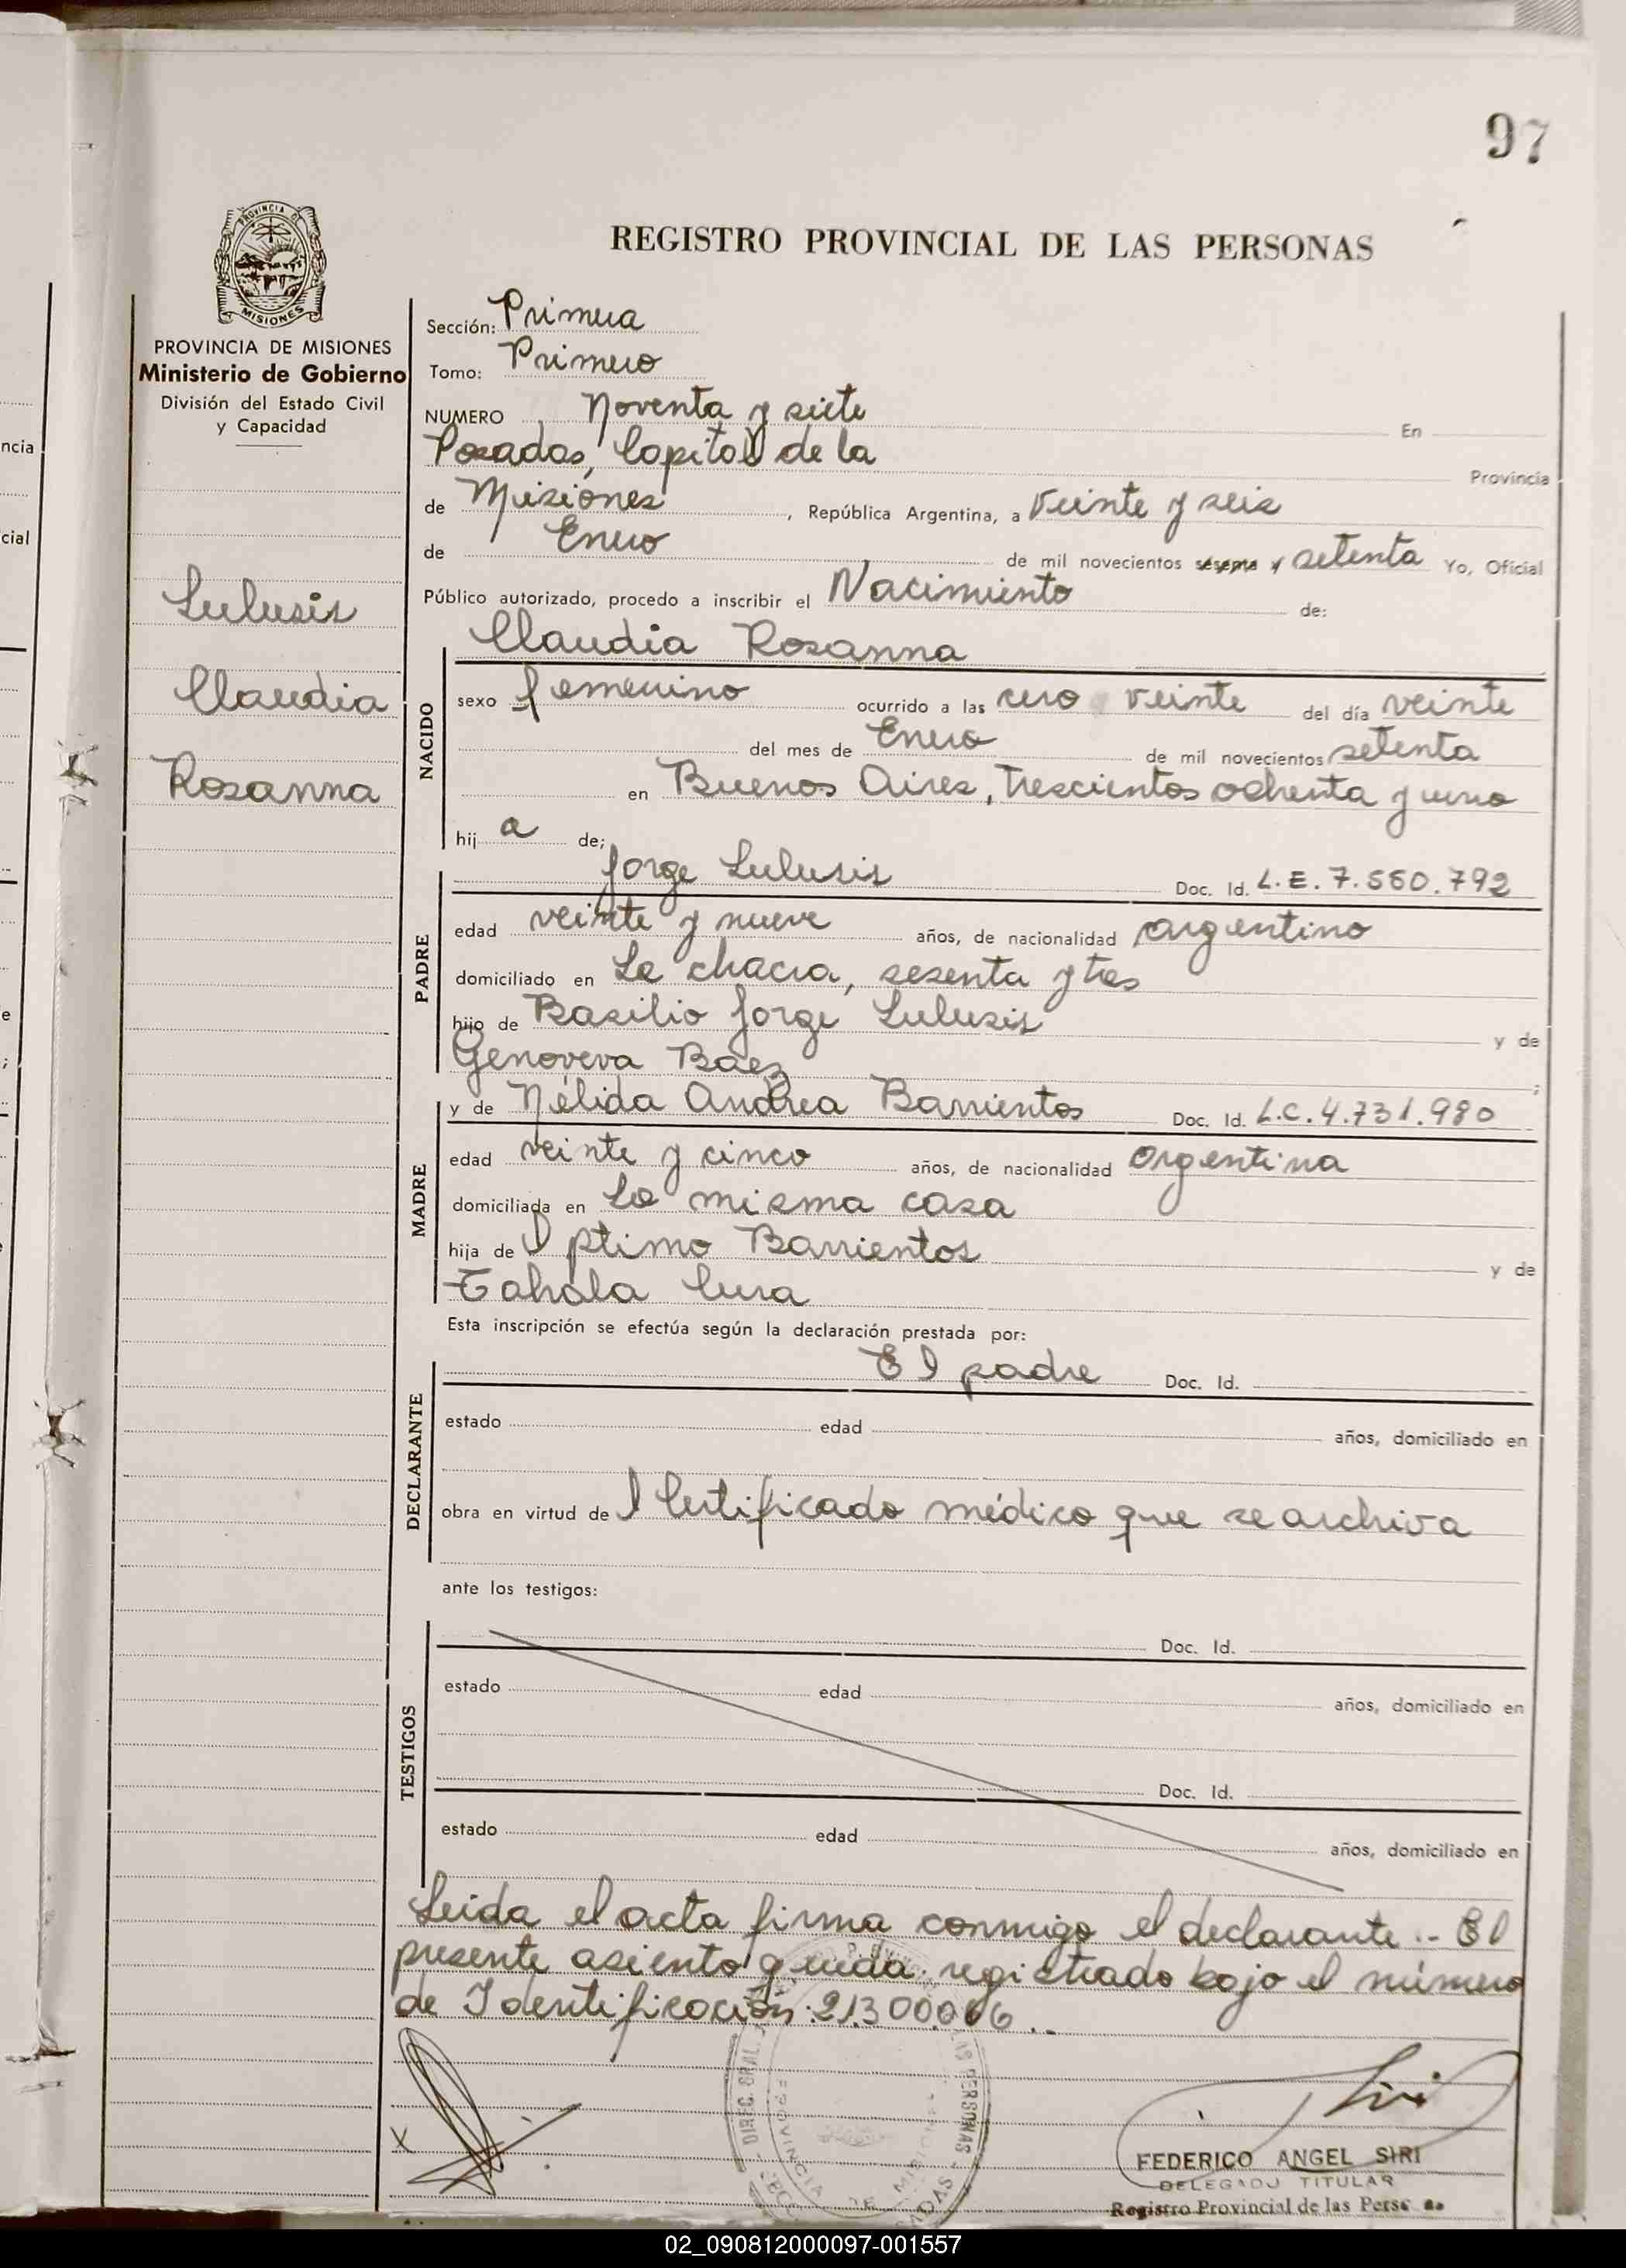 97
REGISTRO PROVINCIAL DE LAS PERSONAS
PROVINCIA DE
MISIONES
PROVINCIA DE MISIONES
Ministerio de Gobierno
División del Estado Civil
y Capacidad
Lulusis
Claudia
Rosanna
Sección: Primera
Tomo: Primero
NUMERO Noventa y siete En
Posadas, Capital de la Provincia
de Misiones, República Argentina, a veinte y seis
de Enero de mil novecientos sesenta y setenta Yo, Oficial
Público autorizado, procedo a inscribir el Nacimiento de:
Claudia Rosanna
NACIDO
sexo femenino ocurrido a las cero veinte del día veinte
del mes de Enero de mil novecientos setenta
en Buenos Aires, trescientos ochenta y uno
hij a de;
Jorge Lulusis Doc. Id. L.E. 7.560.792
PADRE
edad veinte y nueve años, de nacionalidad argentino
domiciliado en La chacra, sesenta y tres
hijo de Basilio Jorge Lulusis y de
Genoveva Baez ;
y de Nélida Andrea Barrientos Doc. Id. L.C. 4.731.980
MADRE
edad veinte y cinco años, de nacionalidad argentina
domiciliada en La misma casa
hija de Barrientos y de
Cura
Esta inscripción se efectúa según la declaración prestada por:
El padre Doc. Id.
DECLARANTE
estado edad años, domiciliado en
obra en virtud de l Certificado médico que se archiva
ante los testigos:
Doc. Id.
TESTIGOS
estado edad años, domiciliado en
Doc. Id.
estado edad años, domiciliado en
Leida el acta firma conmigo el declarante.- El
presente asiento queda registrado bajo el número
de Identificación: 21.300.006..
FEDERICO ANGEL SIRI
DELEGADO TITULAR
Registro Provincial de las Personas
02_090812000097-001557